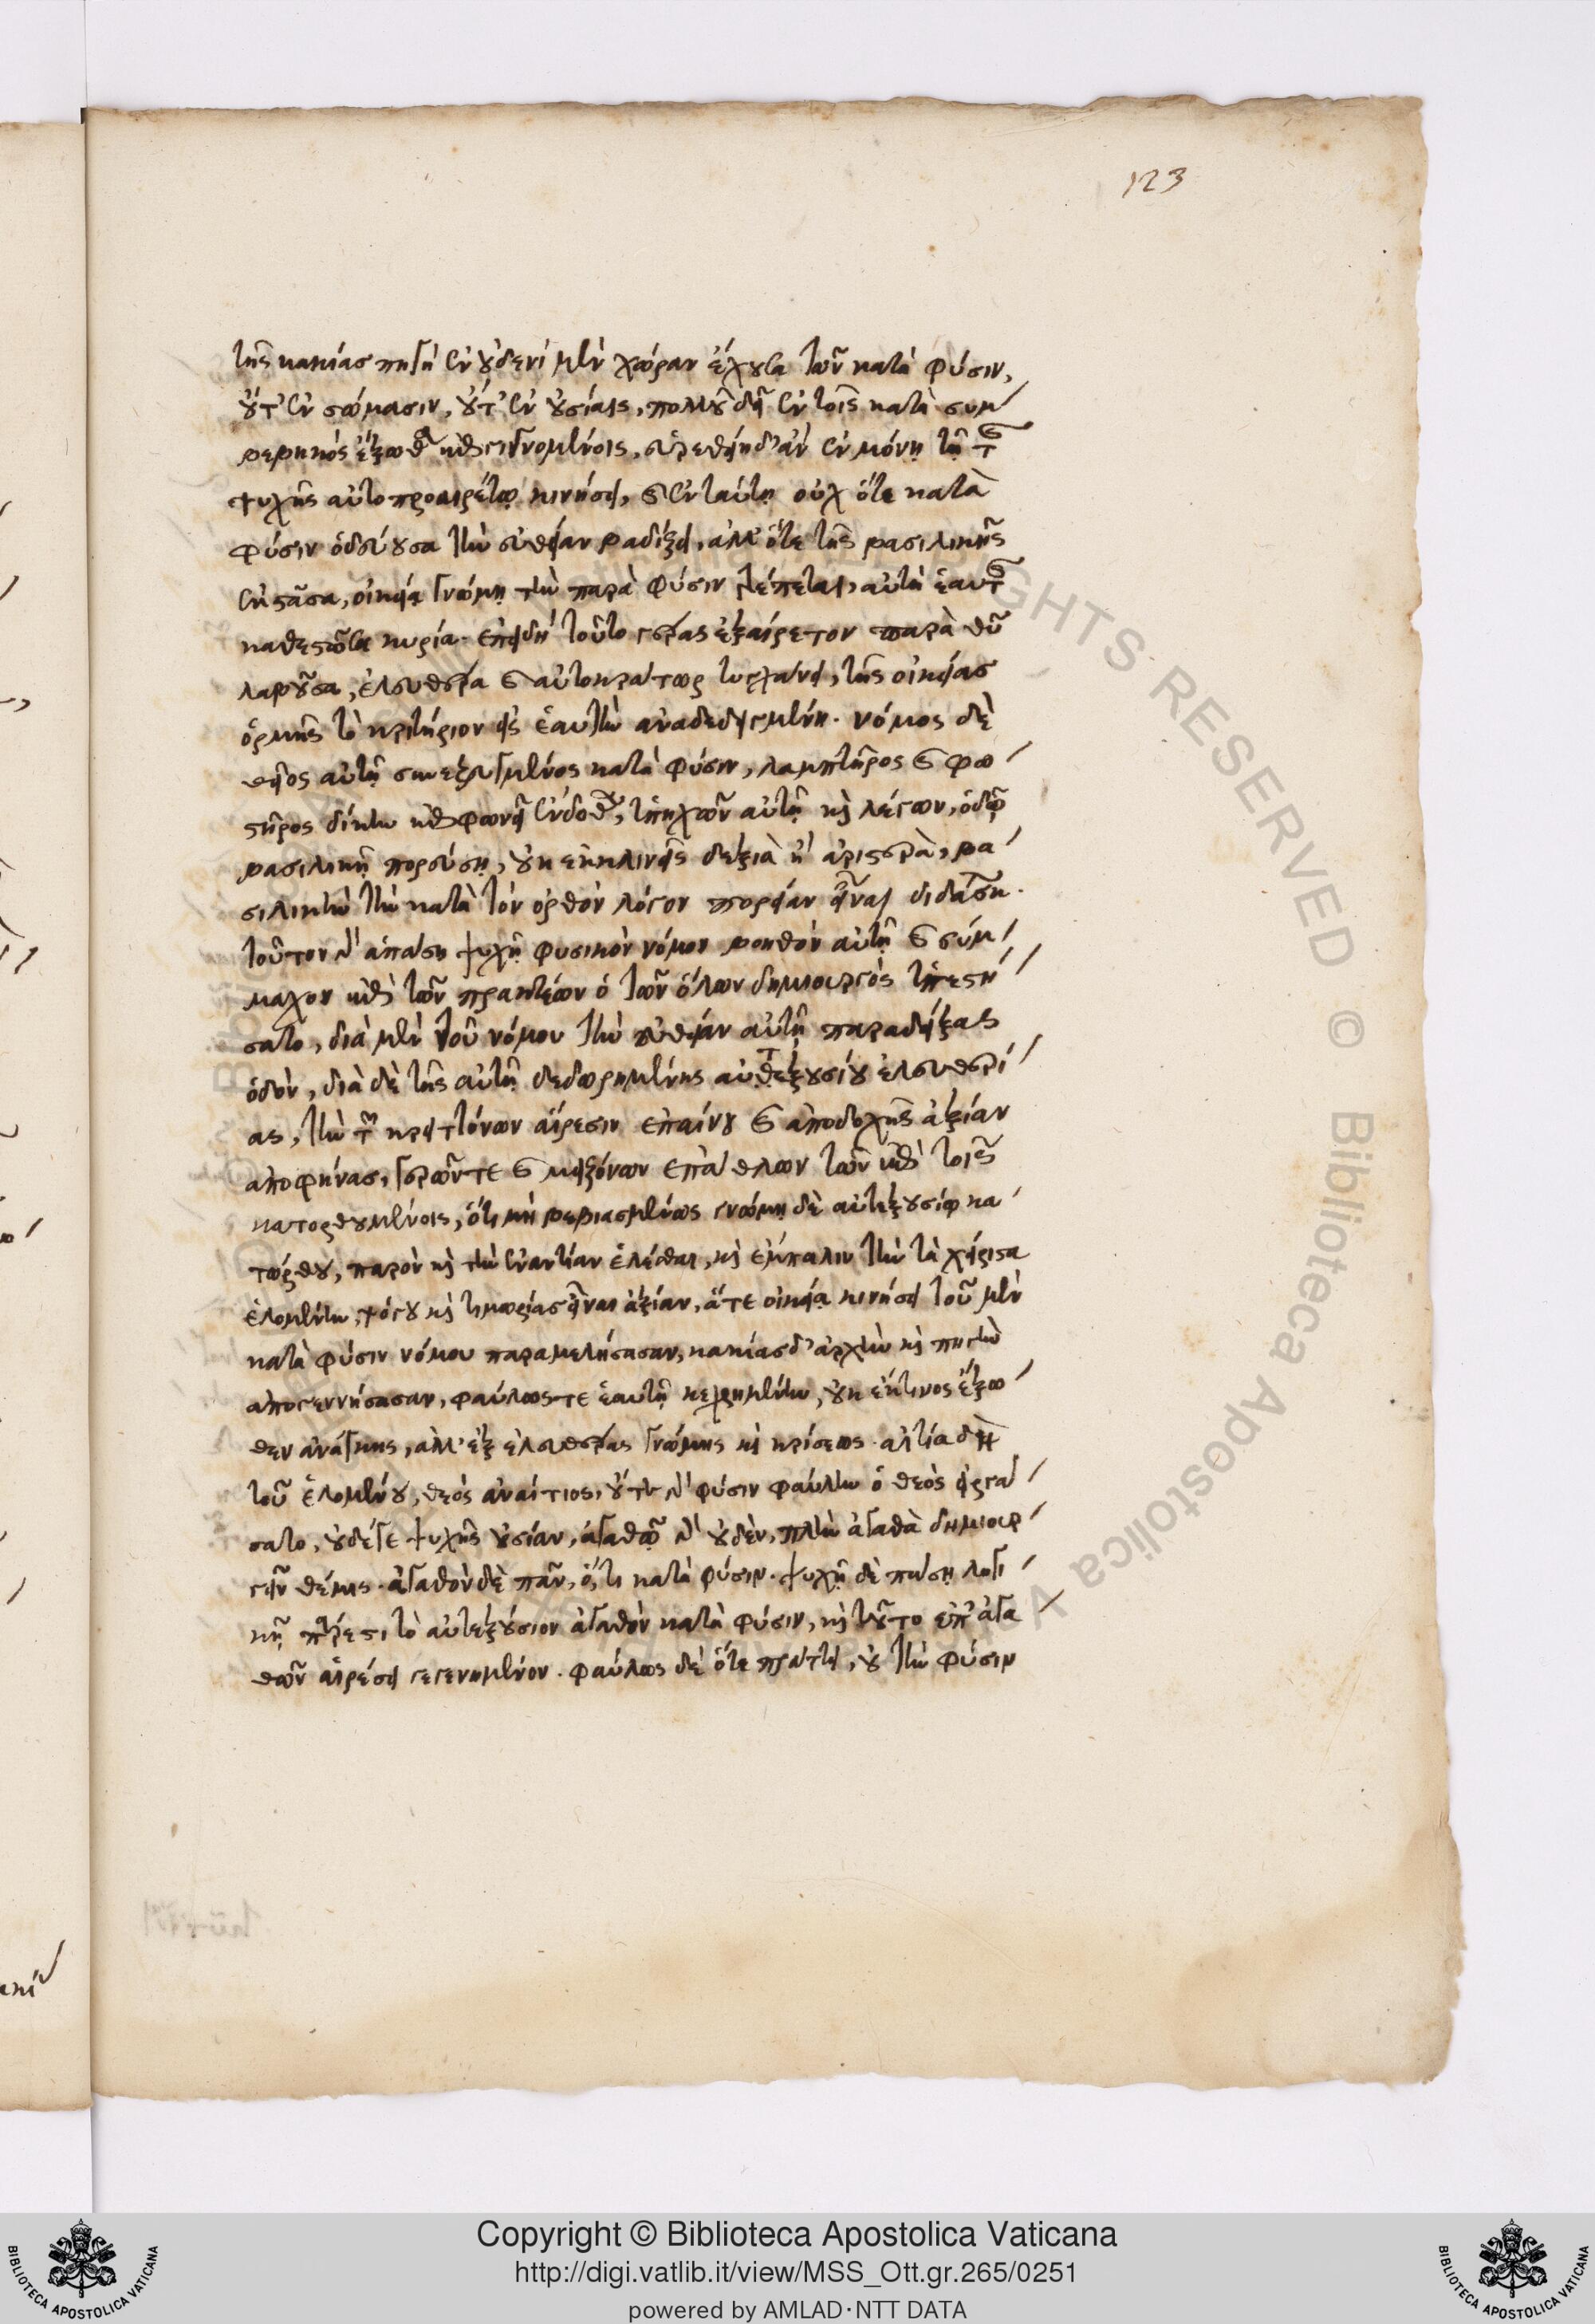 123
τῆς κακίας πηγὴ ἐν οὐδενὶ μὲν χώραν ἔχουσα τῶν κατὰ φύσιν,
οὔτ' ἐν σώμασιν, οὔτ' ἐν οὐσίαις, πολλοῦ δεῖ ἐν τοῖς κατὰ συμ
βεβηκὸς ἔξωθεν ἐπιγινομένοις, εὑρεθείη δ' ἂν ἐν μόνῃ τῇ τῆς
ψυχῆς αὐτοπροαιρέτῳ κινήσει, καὶ ἐν ταύτῃ οὐχ ὅτε κατὰ
φύσιν ὁδεύουσα τὴν εὐθεῖαν βαδίζει, ἀλλ' ὅτε τῆς βασιλικῆς
ἐκστᾶσα, οἰκείᾳ γνώμῃ τὴν παρὰ φύσιν τρέπεται, αὐτὴ ἑαυτῆς
καθεστῶσα κυρία. ἐπειδὴ τοῦτο γέρας ἐξαίρετον παρὰ θεοῦ
λαβοῦσα, ἐλευθέρα καὶ αὐτοκράτωρ τυγχάνει, τῆς οἰκείας
ὁρμῆς τὸ κριτήριον εἰς ἑαυτὴν ἀναδεδεγμένη. νόμος δὲ
θεῖος αὐτῇ συνεζευγμένος κατὰ φύσιν, λαμπτῆρος καὶ φω
στῆρος δίκην ἐπιφωνεῖ ἔνδοθεν, ὑπηχῶν αὐτῇ καὶ λέγων, ὁδῷ
βασιλικῇ πορεύσῃ, οὐκ ἐκκλινεῖς δεξιὰ ἢ ἀριστερὰ, βα
σιλικὴν τὴν κατὰ τὸν ὀρθὸν λόγον πορείαν εἶναι διδάσκων.
τοῦτον γὰρ ἁπάσῃ ψυχῇ φυσικὸν νόμον βοηθὸν αὐτῇ καὶ σύμ
μαχον ἐπὶ τῶν πρακτέων ὁ τῶν ὅλων δημιουργὸς ὑπεστή
σατο, διὰ μὲν τοῦ νόμου τὴν εὐθεῖαν αὐτῇ παραδείξας
ὁδὸν, διὰ δὲ τῆς αὐτῇ δεδωρημένης αὐτεξουσίου ἐλευθερί
ας, τὴν τῶν κρειττόνων αἵρεσιν ἐπαίνου καὶ ἀποδοχῆς ἀξίαν
ἀποφήνας, γερῶν τε καὶ μειζόνων ἐπάθλων τῶν ἐπὶ τοῖς
κατορθουμένοις, ὅτι μὴ βεβιασμένως γνώμῃ δὲ αὐτεξουσίῳ κα
τώρθου, παρὸν καὶ τὴν ἐναντίαν ἑλέσθαι, καὶ ἔμπαλιν τὴν τὰ χείριστα
ἑλομένην, ψόγου καὶ τιμωρίας εἶναι ἀξίαν, ἅτε οἰκείᾳ κινήσει τοῦ μὲν
κατὰ φύσιν νόμου παραμελήσασαν, κακίας δ' ἀρχὴν καὶ πηγὴν
ἀπογεννήσασαν, φαύλως τε ἑαυτῇ κεχρημένην, οὐκ ἔκ τινος ἔξω
θεν ἀνάγκης, ἀλλ' ἐξ ἐλευθέρας γνώμης καὶ κρίσεως. αἰτία δὴ
τοῦ ἑλομένου, θεὸς ἀναίτιος, οὔτε γὰρ φύσιν φαύλην ὁ θεὸς εἰργά
σατο, οὐδέ γε ψυχῆς οὐσίαν, ἀγαθῷ γὰρ οὐδὲν, πλὴν ἀγαθὰ δημιουρ
γεῖν θέμις. ἀγαθὸν δὲ πᾶν, ὅ,τι κατὰ φύσιν. ψυχῇ δὲ πάσῃ λογι
κῇ πάρεστι τὸ αὐτεξούσιον ἀγαθὸν κατὰ φύσιν, καὶ τοῦτο ἐπ' ἀγα
θῶν αἱρέσει γεγενημένον. φαύλως δὲ ὅτε πράττει, οὐ τὴν φύσιν
Copyright © Biblioteca Apostolica Vaticana
http://digi.vatlib.it/view/MSS_Ott.gr.265/0251
powered by AMLAD·NTT DATA
BIBLIOTECA APOSTOLICA VATICANA
BIBLIOTECA APOSTOLICA VATICANA